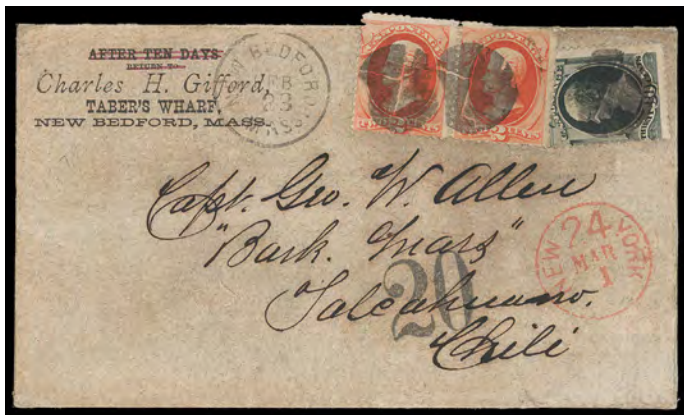 AFTER TEN DAYS
RETURN TO
Charles H. Gifford,
TABER'S WHARF,
NEW BEDFORD, MASS.
NEW BEDFORD MASS.
FEB
23
POSTAGE
2 CENTS
POSTAGE
2 CENTS
Capt. Geo. W. Allen
"Bark. Mars"
Talcahuano.
Chili
20
NEW YORK
24
MAR
1